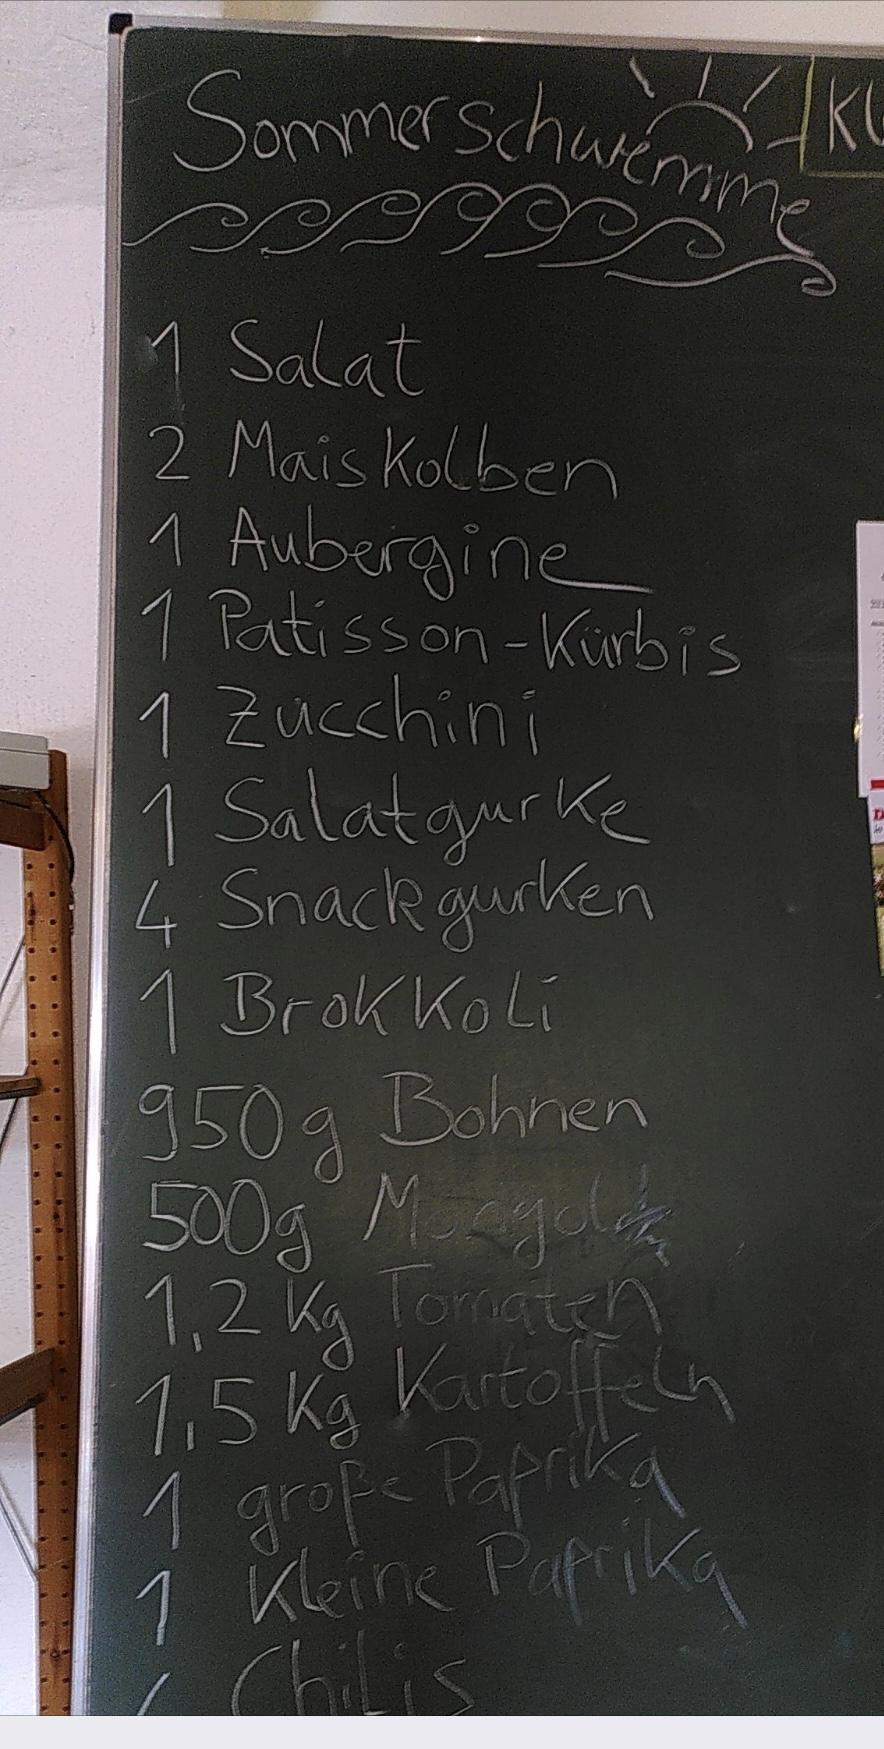 Sommerschwemme
KU
1 Salat
2 Maiskolben
1 Aubergine
1 Patisson-Kürbis
1 Zucchini
1 Salatgurke
4 Snackgurken
1 Brokkoli
950g Bohnen
500g Mangold
1,2 Kg Tomaten
1,5 Kg Kartoffeln
1 große Paprika
1 Kleine Paprika
Chilis